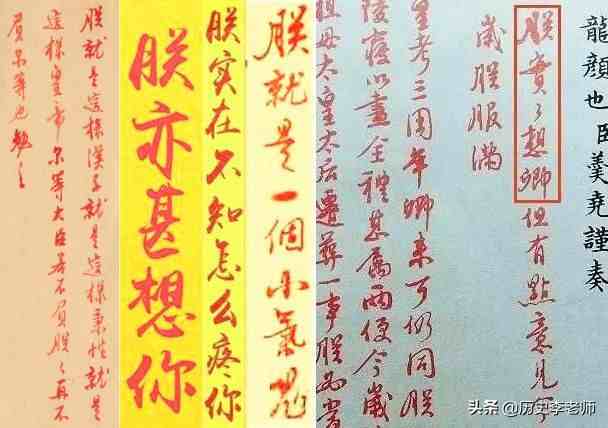 龍顏也臣羹堯謹奏
朕實々想卿但有點意見
歲朕服滿
皇考三周年卿來可仍同朕
陵寢以盡全禮甚屬兩便今歲
祖母太皇太后遷葬一事朕
朕就是一個小氣鬼
朕实在不知怎么疼你
朕亦甚想你
朕就是這樣漢子就是這樣秉性就是
這樣皇帝尔等大臣若不負朕朕再不
負尔等也勉之
头条 @历史李老师